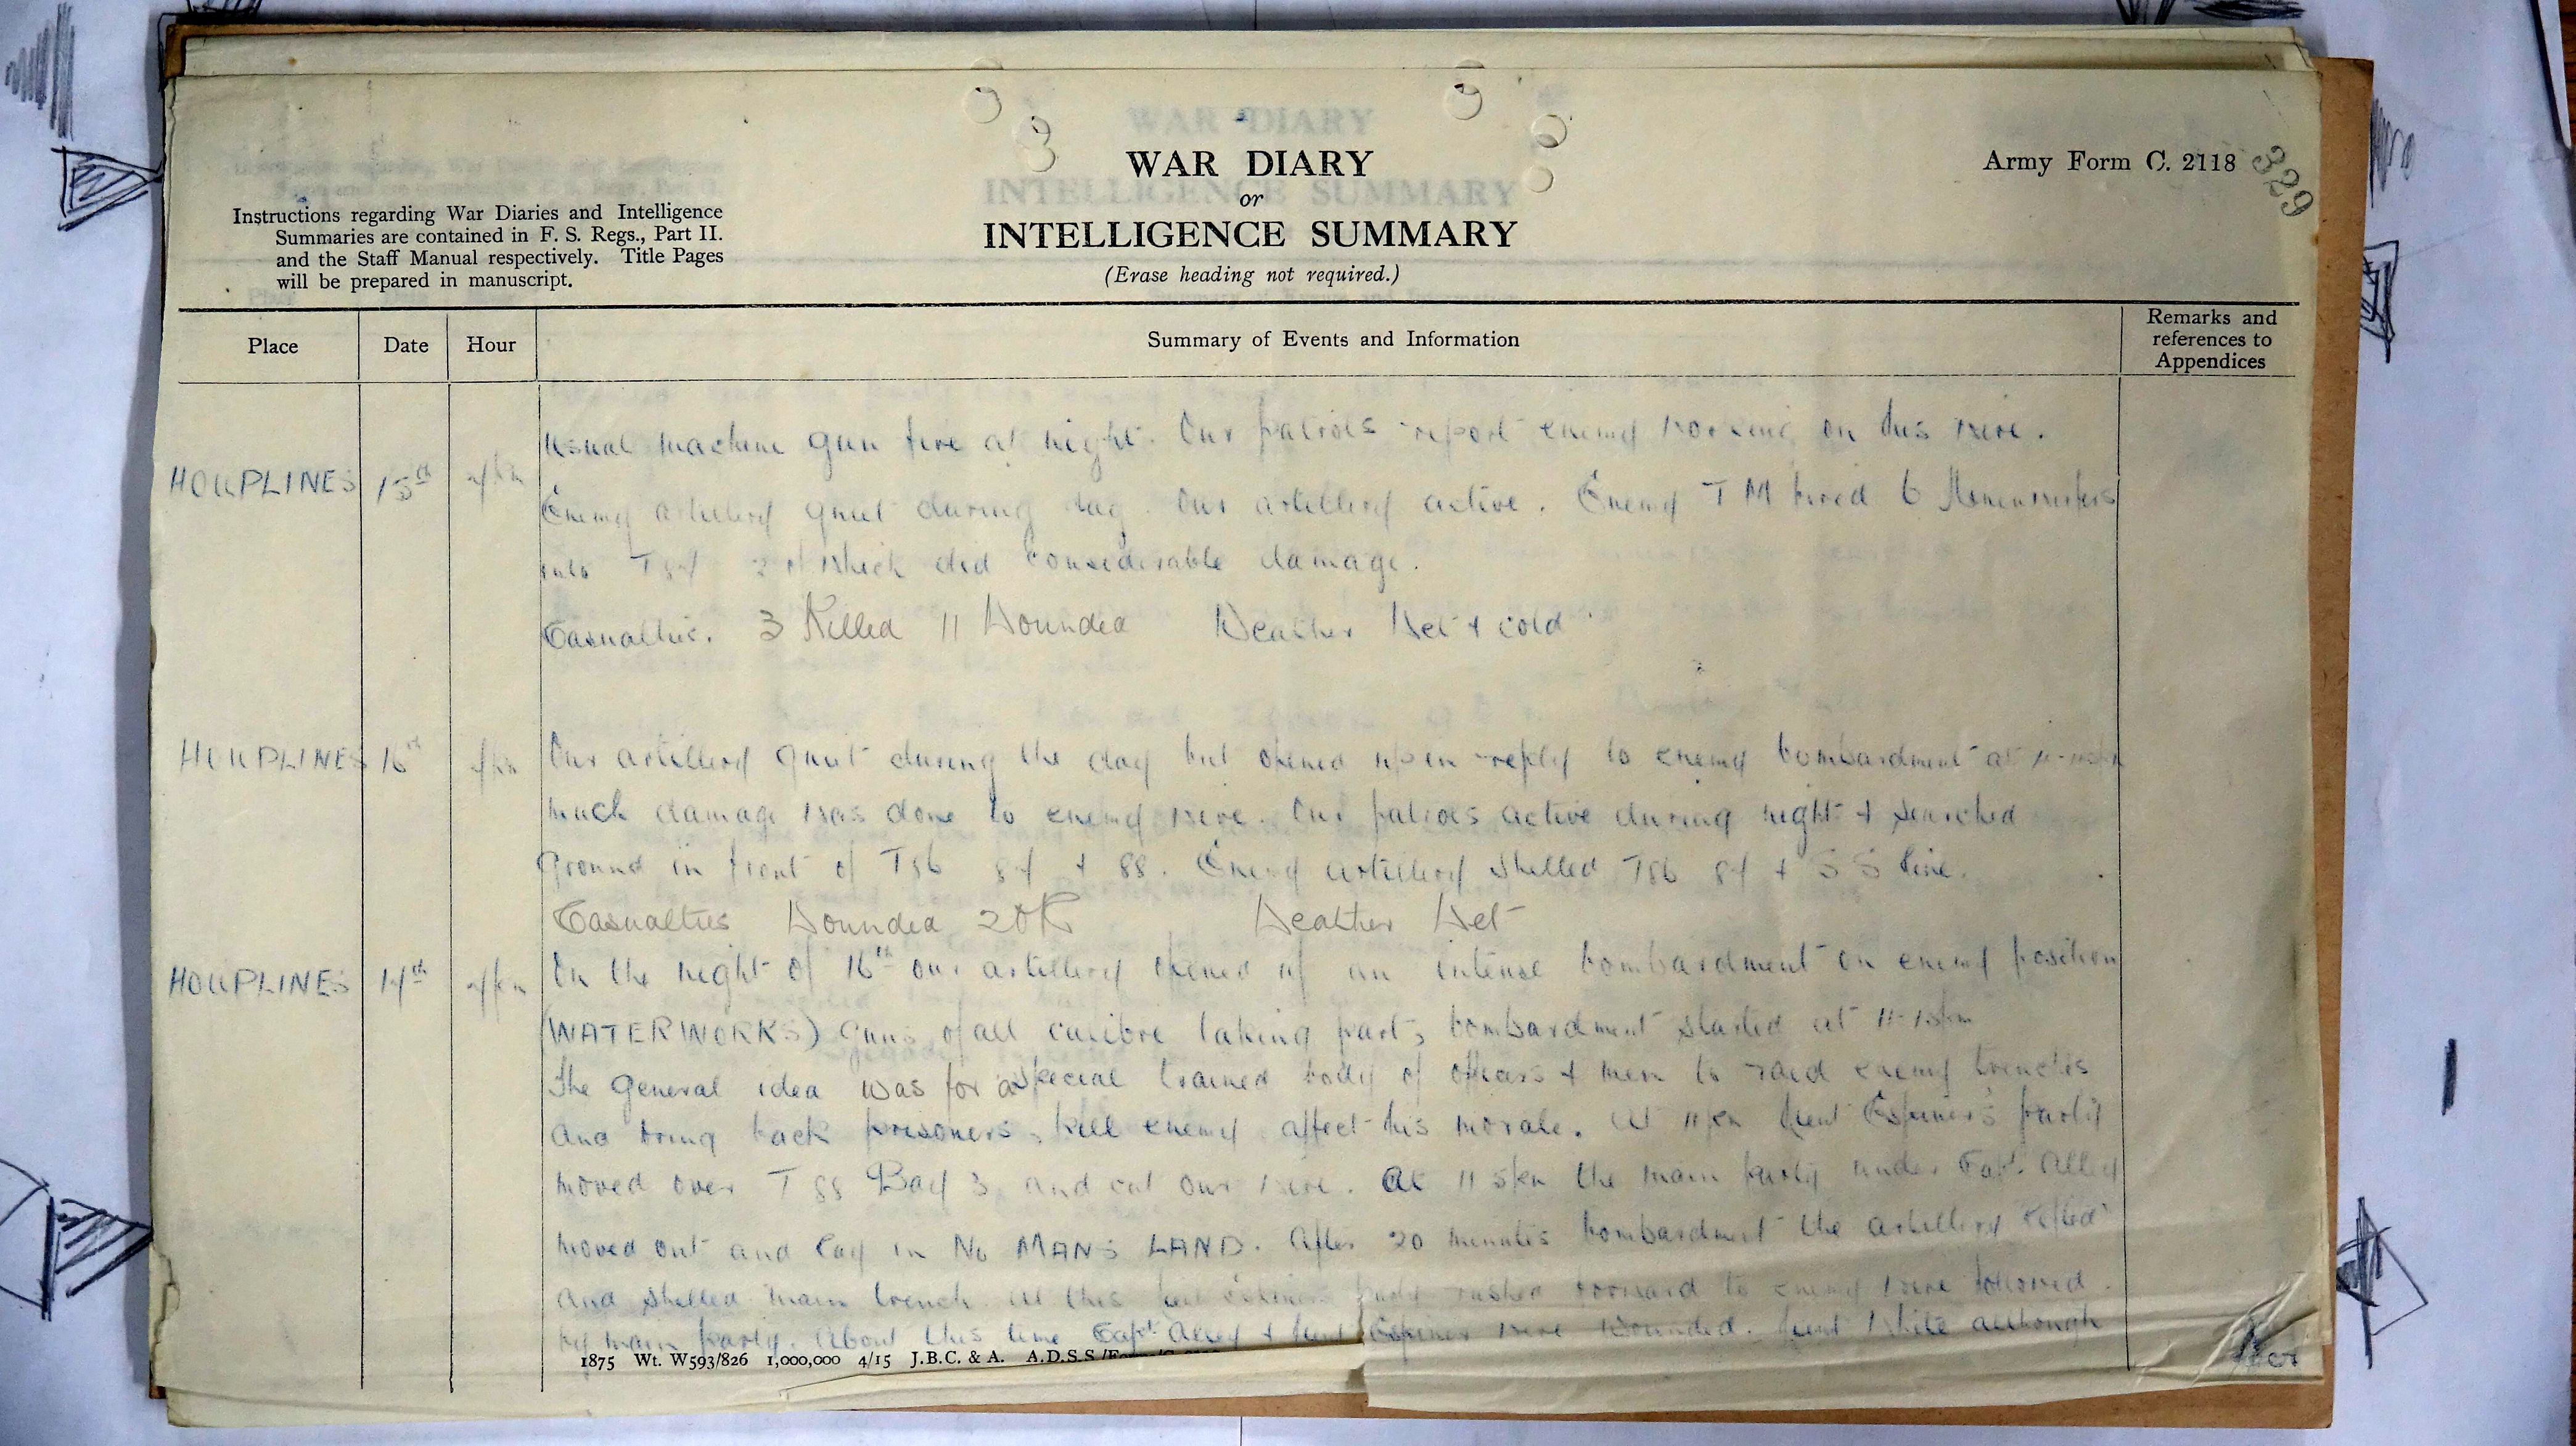 329
Army Form C. 2118
WAR DIARY
or
INTELLIGENCE SUMMARY
(Erase heading not required.)
Instructions regarding War Diaries and Intelligence
Summaries are contained in F. S. Regs., Part II.
and the Staff Manual respectively. Title Pages
will be prepared in manuscript.
Place Date Hour Summary of Events and Information
Remarks and
references to
Appendices
Usual machine gun fire at night. Our patrols report enemy working on his wire.
HOUPLINES 15th Enemy artillery quiet during day. Our artillery active. Enemy TM fired 6
into 2 of which did considerable damage.
Casualties. 3 Killed 11 Wounded Weather Wet + cold.
HOUPLINES 16th Our artillery quiet during the day but opened up in reply to enemy bombardment at
much damage was done to enemy wire. Our patrols active during night + searched
ground in front of T86 87 + 88. Enemy artillery shelled T86 87 + SS line.
Casualties Wounded 2OR Weather Wet
HOUPLINES 17th On the night of 16th our artillery opened up an intense bombardment on enemy position
(WATERWORKS) guns of all calibre taking part, bombardment started at 11-15pm
The general idea was for a special trained body of officers + men to raid enemy trenches
and bring back prisoners, kill enemy affect his morale. At 11pm Lieut Espiner's party
moved over T 88 Bay 3 and cut our wire. At 11 5pm the main party under Capt. Alley
moved out and lay in NO MANS LAND. After 20 minutes bombardment the artillery lifted
and shelled main trench. At this Lieut Espiners party rushed forward to enemy wire followed
by main party. About this time Capt Alley + Lieut Espiner were wounded. Lieut White although
1875 Wt. W593/826 1,000,000 4/15 J.B.C. & A. A.D.S.S.